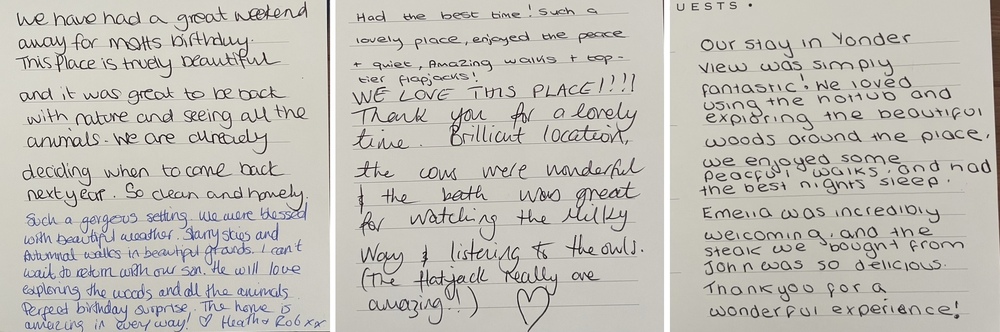 We have had a great weekend
away for Matts birthday.
This Place is truely beautiful
and it was great to be back
with nature and seeing all the
animals. We are already
deciding when to come back
next year. So clean and homely.
Such a gergeous setting. We were blessed
with beautiful weather. Starry skies and
Autumnal walks in beautiful grounds. I can't
wait to return with our son. He will love
exploring the woods and all the animals
Perfect birthday surprise. The home is
amazing in every way! ♡ Heath & Rob xx
Had the best time! Such a
lovely place, enjoyed the peace
+ quiet, Amazing walks + top-
tier flapjacks!
WE LOVE THIS PLACE!!!!
Thank you for a lovely
time. Brillicut location,
the cows were wonderful
& the bath was great
for watching the Milky
Way & listening to the owls.
(The flatjack really are
amazing!!) ♡
UESTS •
Our stay in Yonder
view was simply
fantastic! We loved
using the hottub and
exploring the beautiful
woods around the place,
we enjoyed some
peacful walks, and had
the best nights sleep.
Emelia was incredibly
welcoming, and the
steak we bought from
John was so delicious.
Thankyoo for a
wonderful experience!